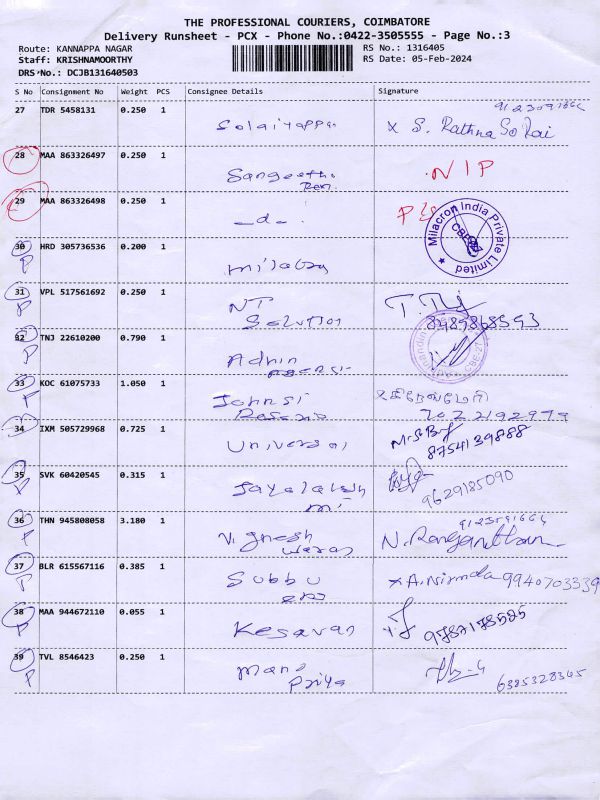 THE PROFESSIONAL COURIERS, COIMBATORE
Delivery Runsheet - PCX - Phone No.:0422-3505555 - Page No.:3
Route: KANNAPPA NAGAR RS No.: 1316405
Staff: KRISHNAMOORTHY RS Date: 05-Feb-2024
DRS No.: DCJB131640503
S No Consignment No Weight PCS Consignee Details Signature
27 TDR 5458131 0.250 1 Solaiyappa x S. Rathna
28 MAA 863326497 0.250 1 Sangeetha NIP
29 MAA 863326498 0.250 1 -d-
Milacron India Private Limited
30 HRD 305736536 0.200 1
P
31 VPL 517561692 0.250 1 NT
P Solution 8489868593
32 TNJ 22610200 0.790 1 Admin
P
33 KOC 61075733 1.050 1
P
34 IXM 505729968 0.725 1 Universal
8754139888
35 SVK 60420545 0.315 1 Jayalaksh
P mi 9629185090
36 THN 945808058 3.180 1 Vignesh N. Ranganathan
P waran
37 BLR 615567116 0.385 1 Subbu x A. Nirmala 9940703339
P
38 MAA 944672110 0.055 1 Kesavan 9787178525
P
39 TVL 8546423 0.250 1 Mano
P Priya 6385328345